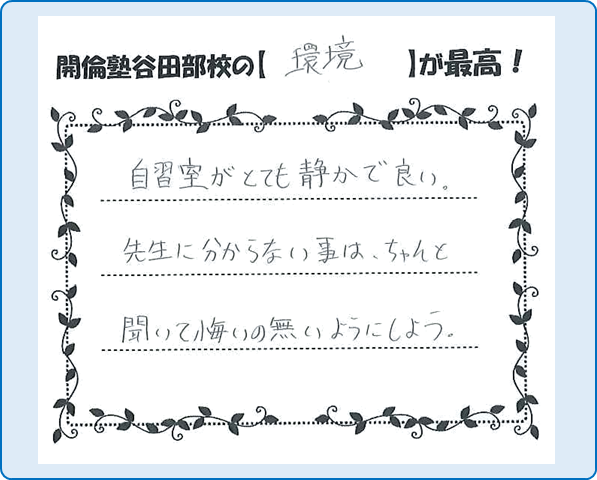 開倫塾谷田部校の【 環境 】が最高！
自習室がとても静かで良い。
先生に分からない事は、ちゃんと
聞いて悔いの無いようにしよう。